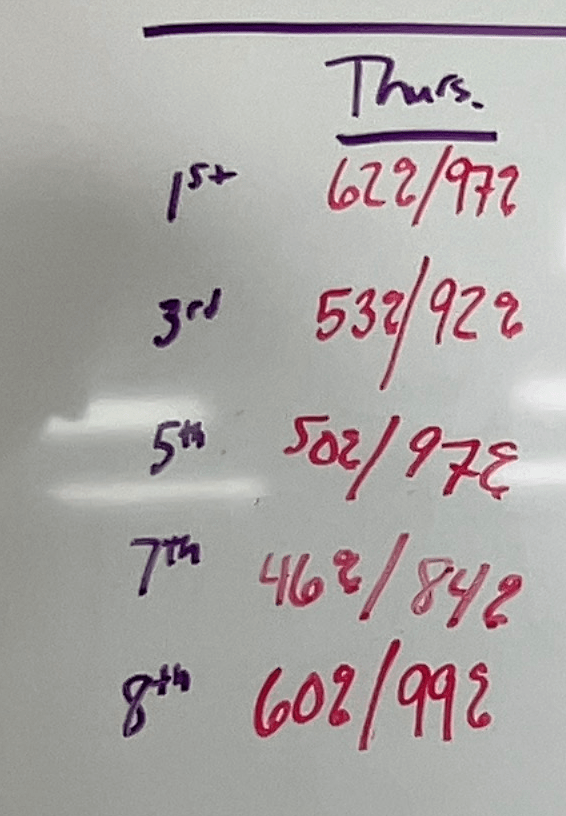 Thurs.
1st 62%/97%
3rd 53%/92%
5th 50%/97%
7th 46%/84%
8th 60%/99%